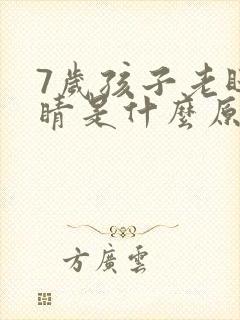 7歲孩子老
睛是什麼原
方廣雲